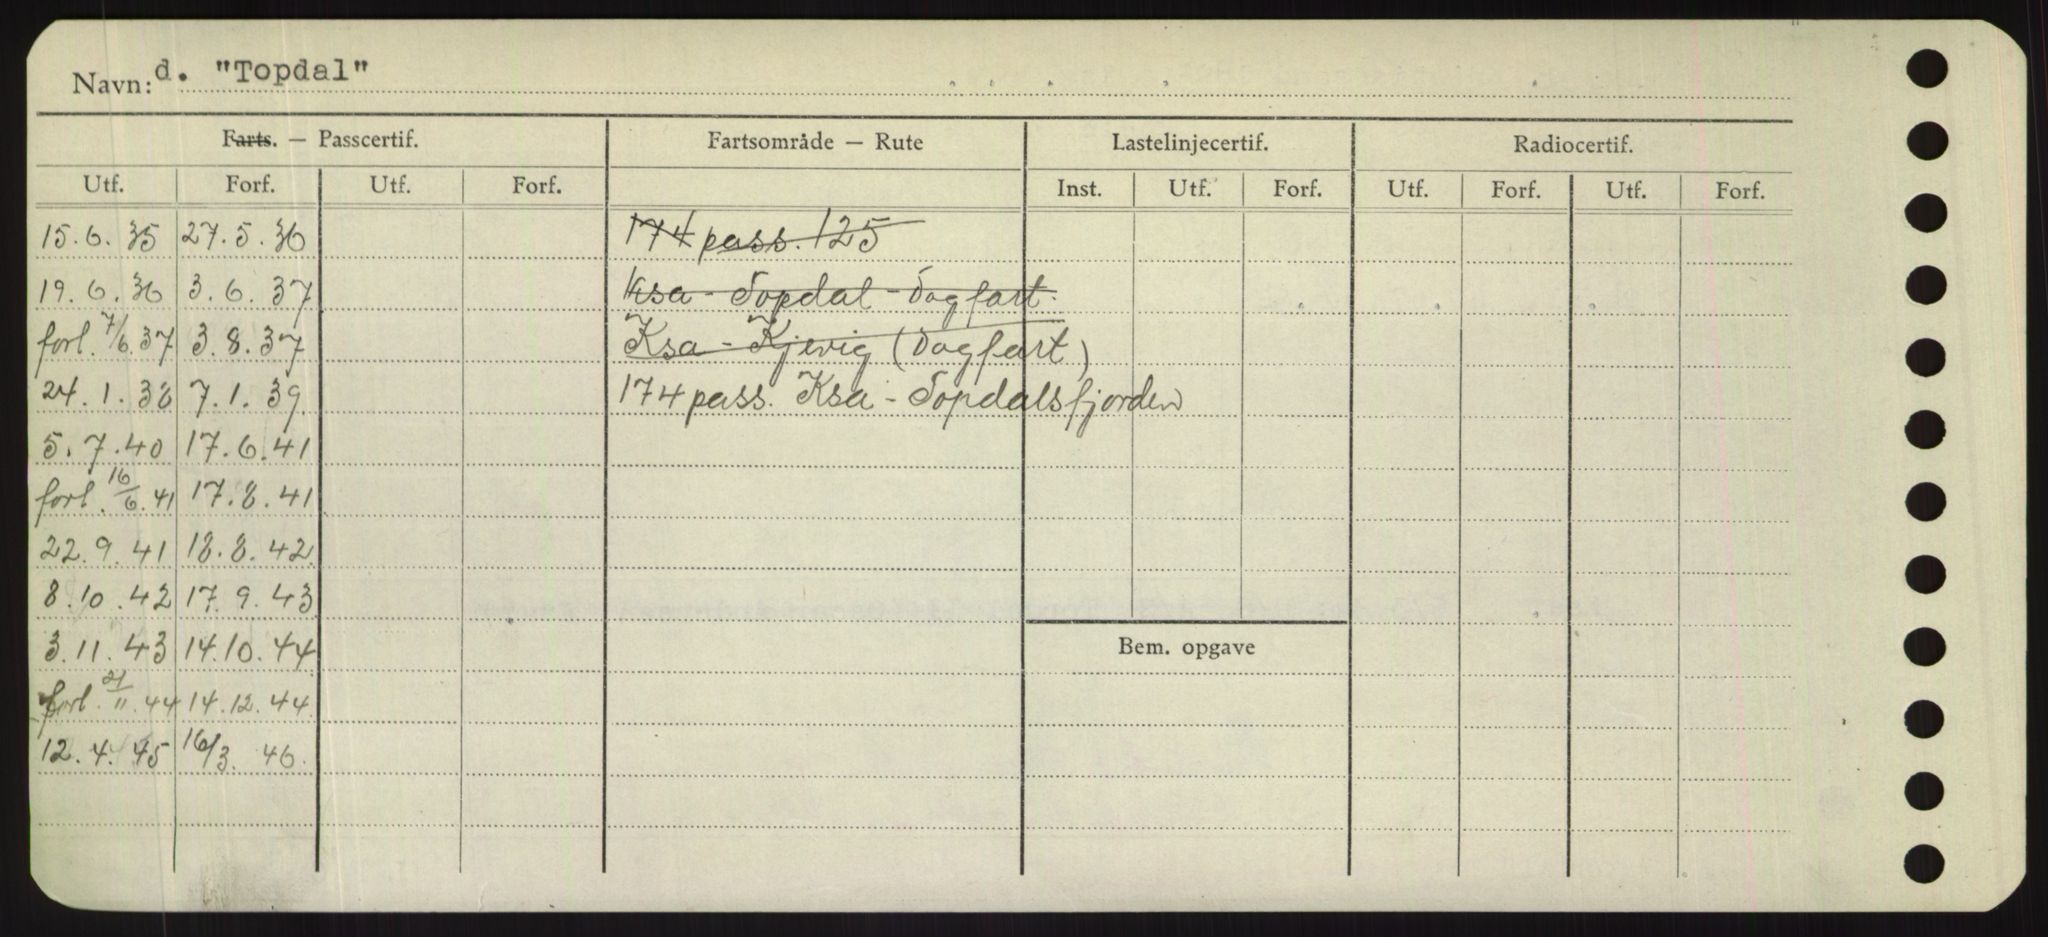 Navn: d. "Topdal"
Farts. — Passcertif. Fartsområde — Rute Lastelinjecertif. Radiocertif.
Utf. Forf. Utf. Forf. Inst. Utf. Forf. Utf. Forf. Utf. Forf.
15.6.35 27.5.36 174 pass. 125
19.6.36 3.6.37 Ksa - Topdal - Dagfart.
forl. 7/6.37 3.8.37 Ksa - Kjevig (Dagfart)
24.1.38 7.1.39 174 pass. Ksa - Topdalsfjorden
5.7.40 17.6.41
forl. 16/6.41 17.8.41
22.9.41 18.8.42
8.10.42 17.9.43
3.11.43 14.10.44
Bem. opgave
forl. 21/11.44 14.12.44
12.4.45 16/3.46.